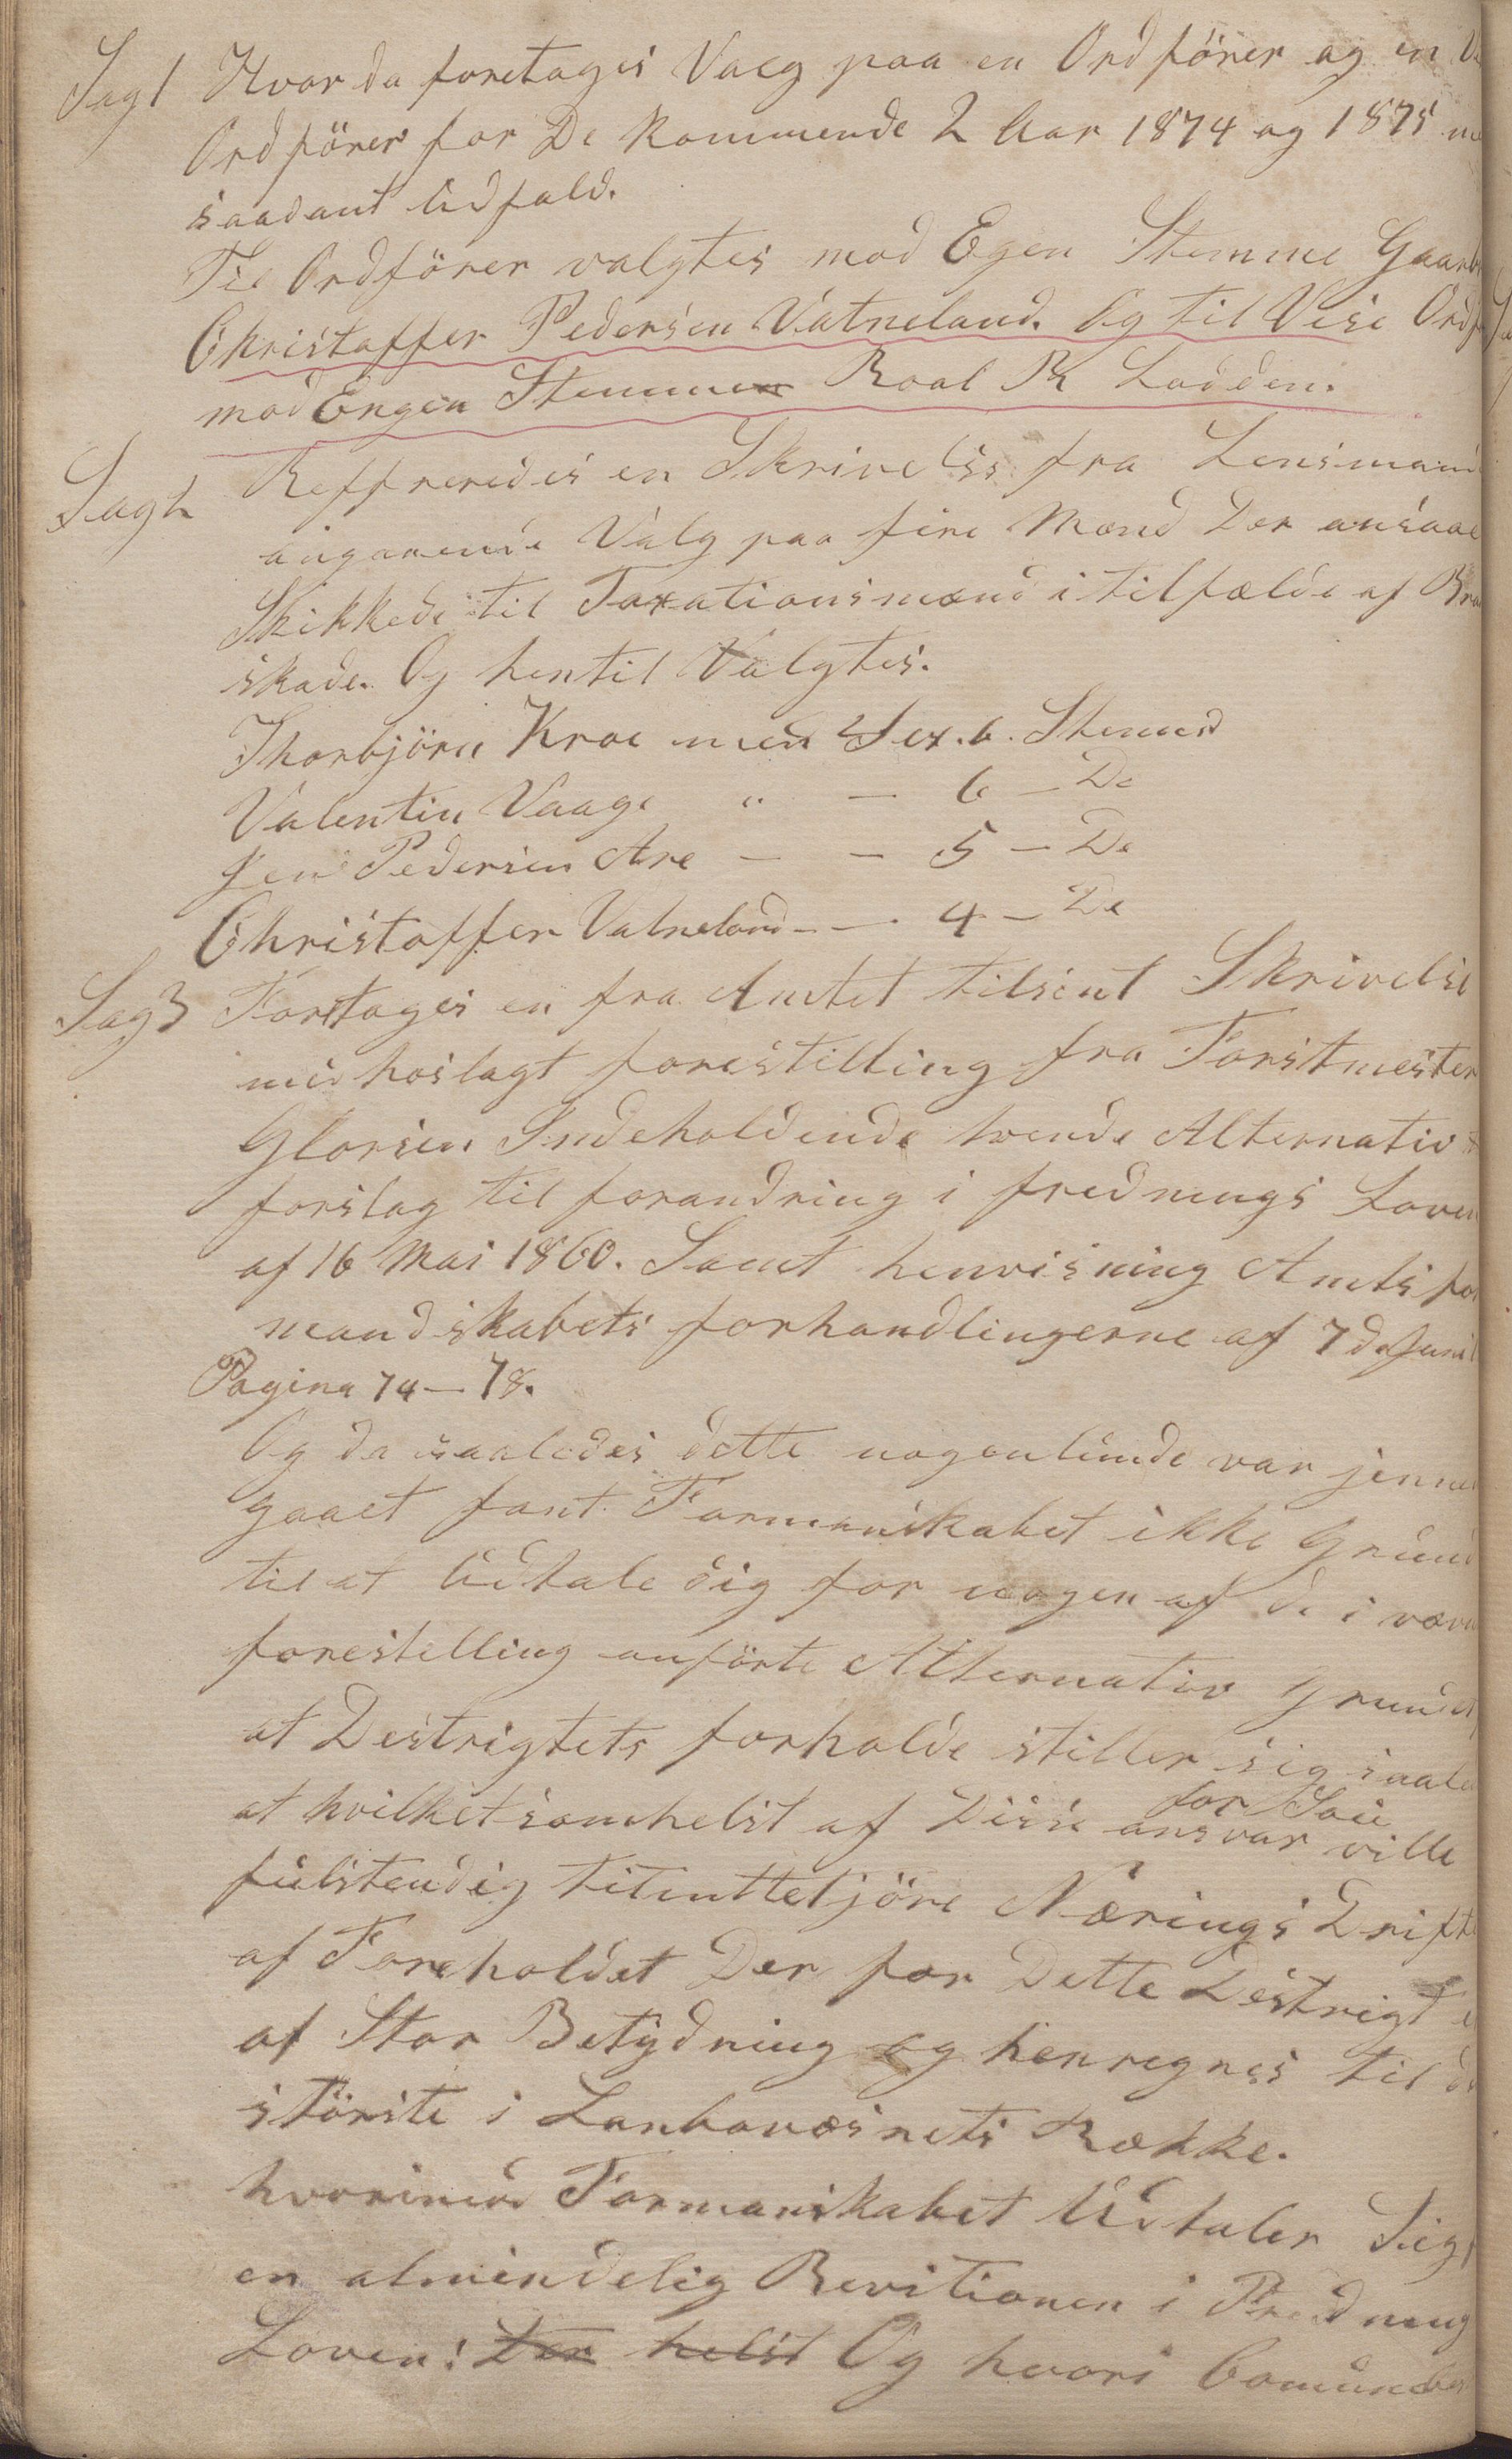 Sag 1 Hvor da foretages Valg paa en Ordförer og en
Ordförer for De kommende 2 Aar 1874 og 1875
saadant Udfald.
Til Ordförer valgtes mod Egen Stemme Gaardb
Christoffer Pedersen Vatneland. Og til Vise Ordf
mod Engen Stemmen Roal R Lodden.
Sag 2 Reffreredes en Skrivelse fra Lensmand
angaaende Valg paa fire Mænd Der ansaae
Skikkede til Taxationsmænd i tilfælde af Bra
skade. Og hertil Valgtes.
Thorbjörn Kroe med Sex. 6. Stemmer
Valentin Vaage " — 6 — De
Jens Pedersen Are — — 5 — De
Christoffer Vatneland — — 4 — De
Sag 3 Foretages en fra Amtet tilsent Skrivelse
med hoslagt forestilling fra Forstmester
Glorsen Indeholdende tvende Alternativ
forslag til forandring i frednings Loven
af 16 Mai 1860. Samt henvisning Amtsfor
mandskabets forhandlingerne af 7de Juni
Pagina 74 — 78.
Og da saaledes dette nogenlunde var jennem
gaaet fant Formanskabet ikke Grund
til at Udtale sig for nogen af de i
forestelling anförte Alternativ Grundet
at Destrigtets forholde stiller sig saaled
at hvilketsomhelst af Disse ansvar for Soue ville
fulstendig tilintetjöre Nærings Drifte
af Foreholdet Der for Dette Destrigt e
af Stor Betydning og henregnes til de
störste i Lanbovæsnets Række.
hvorimod Formanskabet Udtaler Sig
en almindelig Revitionen i Fredning
Loven: Der helst Og hvori Comune